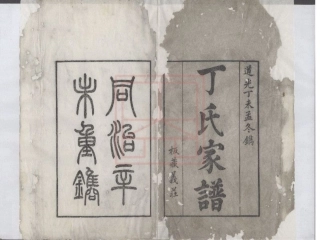 道光丁未孟冬鐫
丁氏家譜
板藏義莊
同治辛
未重鐫